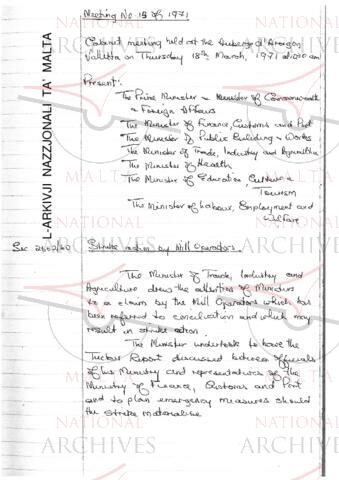 Meeting No 15 of 1971
Cabinet meeting held at the Auberge d'Aragon,
Valletta on Thursday 18th March, 1971 at
Present:
The Prime Minister & Minister of Commonwealth
& Foreign Affairs
The Minister of Finance, Customs and Port
The Minister of Public Building & Works
The Minister of Trade, Industry and Agriculture
The Minister of Health
The Minister of Education, Culture &
Tourism
The Minister of Labour, Employment and
Welfare
Strike action by Mill Operators
The Minister of Trade, Industry and
Agriculture drew the attention of Ministers
to a claim by the Mill Operators which has
been referred to conciliation and which may
result in strike action.
The Minister undertook to have the
Report discussed between officials
of his Ministry and representatives of the
Ministry of Finance, Customs and Port
and to plan emergency measures should
the strike materialise
L-ARKIVJI NAZZJONALI TA' MALTA
NATIONAL
ARCHIVES
MALTA